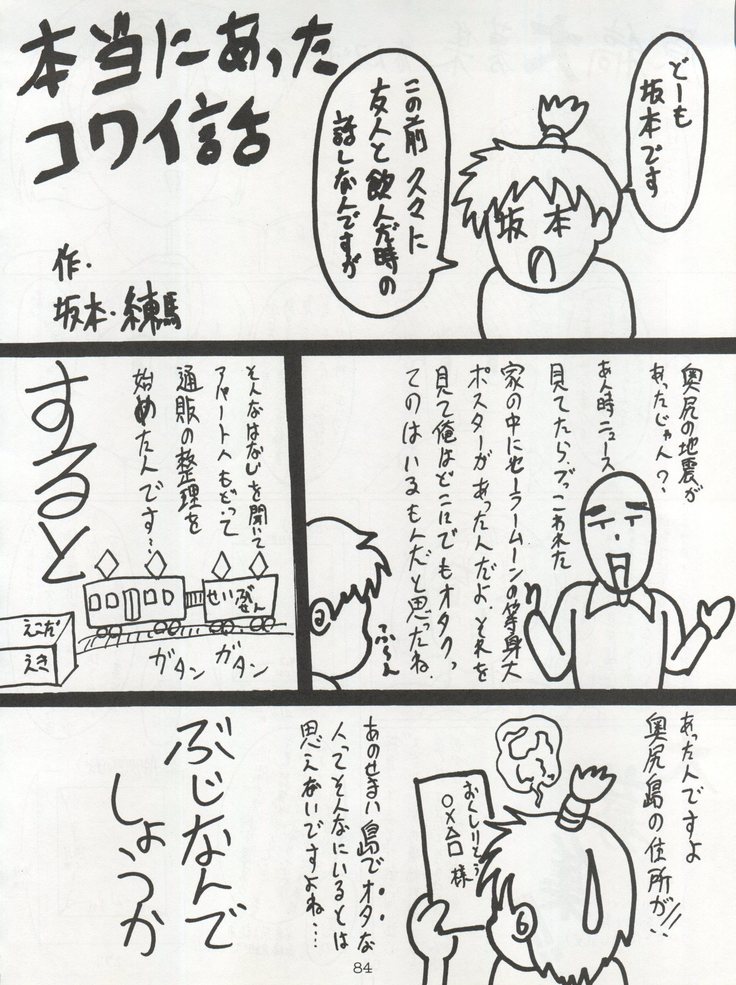 本当にあった
コワイ話
作・
坂本・練馬
どーも
坂本です
坂本
この前 久々に
友人と飲んだ時の
話しなんですが
奥尻の地震が
あったじゃん?
あん時ニュース
見てたらブっこわれた
家の中にセーラームーンの等身大
ポスターがあったんだよ、それを
見て俺はどこにでもオタクっ
てのはいるもんだと思ったね.
ふーん
そんなはなしを聞いて
アパートへもどって
通販の整理を
始めたんです…
すると
せいぶせん
えこだ
えき
ガタン
ガタン
あったんですよ
奥尻島の住所が!!
おくしりとう
○×△□様
あのせまい島でオタな
人ってそんなにいるとは
思えないですよね….
ぶじなんで
しょうか
84